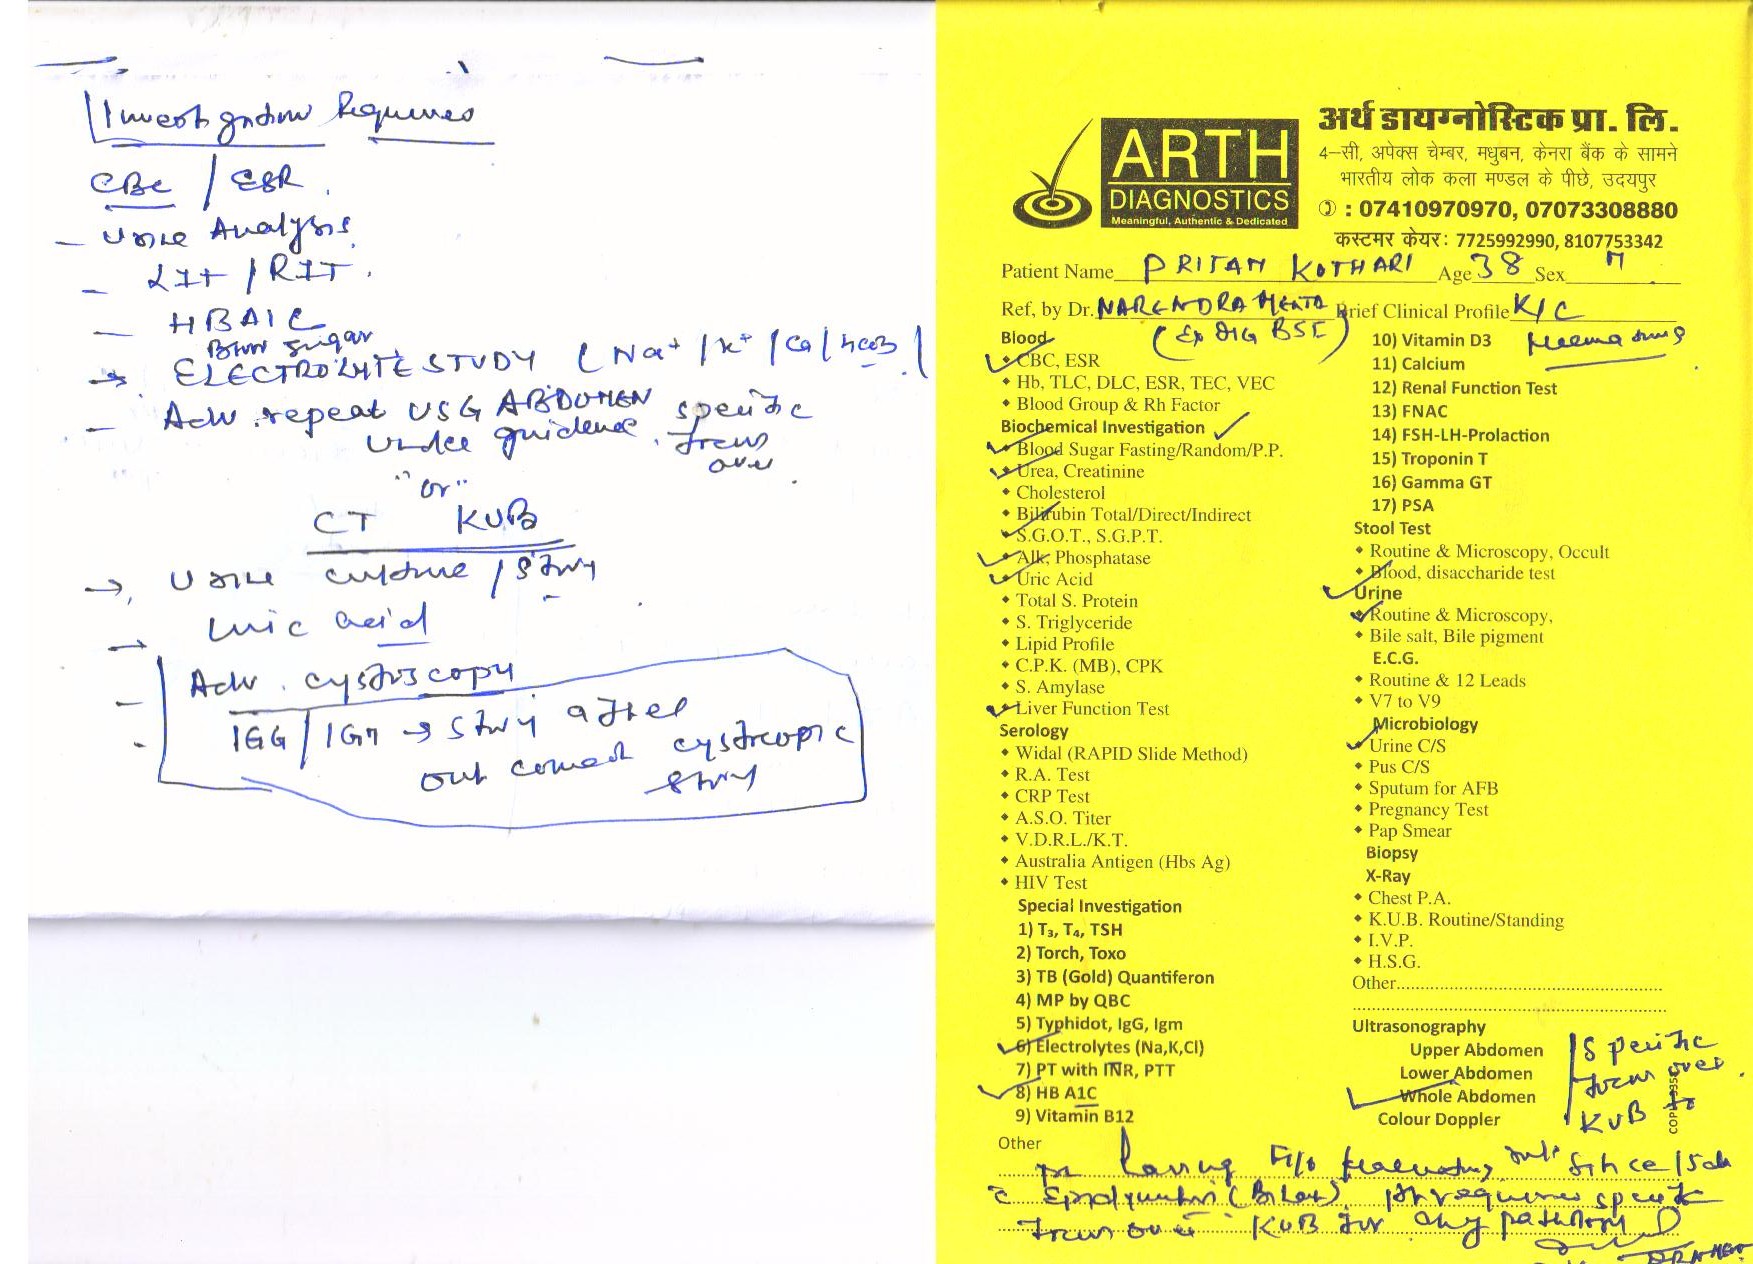 Investigation Required
CBC / ESR.
- Urine Analysis
- LFT / RFT.
- HBAIC
Blood sugar
→ ELECTROLYTE STUDY (Na+ / K+ / Ca / HCO3)
- Adv. repeat USG ABDOMEN specific
under guidence. focus
over
"or"
CT KUB
→ Urine culture / Stvy
→ Uric acid
- Adv. cystoscopy
- IGG / IGM → Stvy after
out come cystocopic
stvy
ARTH
DIAGNOSTICS
Meaningful, Authentic & Dedicated
अर्थ डायग्नोस्टिक प्रा. लि.
4–सी, अपेक्स चेम्बर, मधुबन, केनरा बैंक के सामने
भारतीय लोक कला मण्डल के पीछे, उदयपुर
: 07410970970, 07073308880
कस्टमर केयर: 7725992990, 8107753342
Patient Name PRITAM KOTHARI Age 38 Sex M
Ref, by Dr. NARENDRA MEHTA Brief Clinical Profile K/C
(Ex DIG BSF)
Blood
CBC, ESR
Hb, TLC, DLC, ESR, TEC, VEC
Blood Group & Rh Factor
Biochemical Investigation
Blood Sugar Fasting/Random/P.P.
Urea, Creatinine
Cholesterol
Bilirubin Total/Direct/Indirect
S.G.O.T., S.G.P.T.
Alk, Phosphatase
Uric Acid
Total S. Protein
S. Triglyceride
Lipid Profile
C.P.K. (MB), CPK
S. Amylase
Liver Function Test
Serology
Widal (RAPID Slide Method)
R.A. Test
CRP Test
A.S.O. Titer
V.D.R.L./K.T.
Australia Antigen (Hbs Ag)
HIV Test
Special Investigation
1) T₃, T₄, TSH
2) Torch, Toxo
3) TB (Gold) Quantiferon
4) MP by QBC
5) Typhidot, IgG, Igm
6) Electrolytes (Na,K,Cl)
7) PT with INR, PTT
8) HB A1C
9) Vitamin B12
10) Vitamin D3
11) Calcium
12) Renal Function Test
13) FNAC
14) FSH-LH-Prolaction
15) Troponin T
16) Gamma GT
17) PSA
Stool Test
Routine & Microscopy, Occult
Blood, disaccharide test
Urine
Routine & Microscopy,
Bile salt, Bile pigment
E.C.G.
Routine & 12 Leads
V7 to V9
Microbiology
Urine C/S
Pus C/S
Sputum for AFB
Pregnancy Test
Pap Smear
Biopsy
X-Ray
Chest P.A.
K.U.B. Routine/Standing
I.V.P.
H.S.G.
Other
Ultrasonography
Upper Abdomen
Lower Abdomen
Whole Abdomen
Colour Doppler
Specific
focus over
KUB
Other
having since
specific
focus over KUB for any pathology